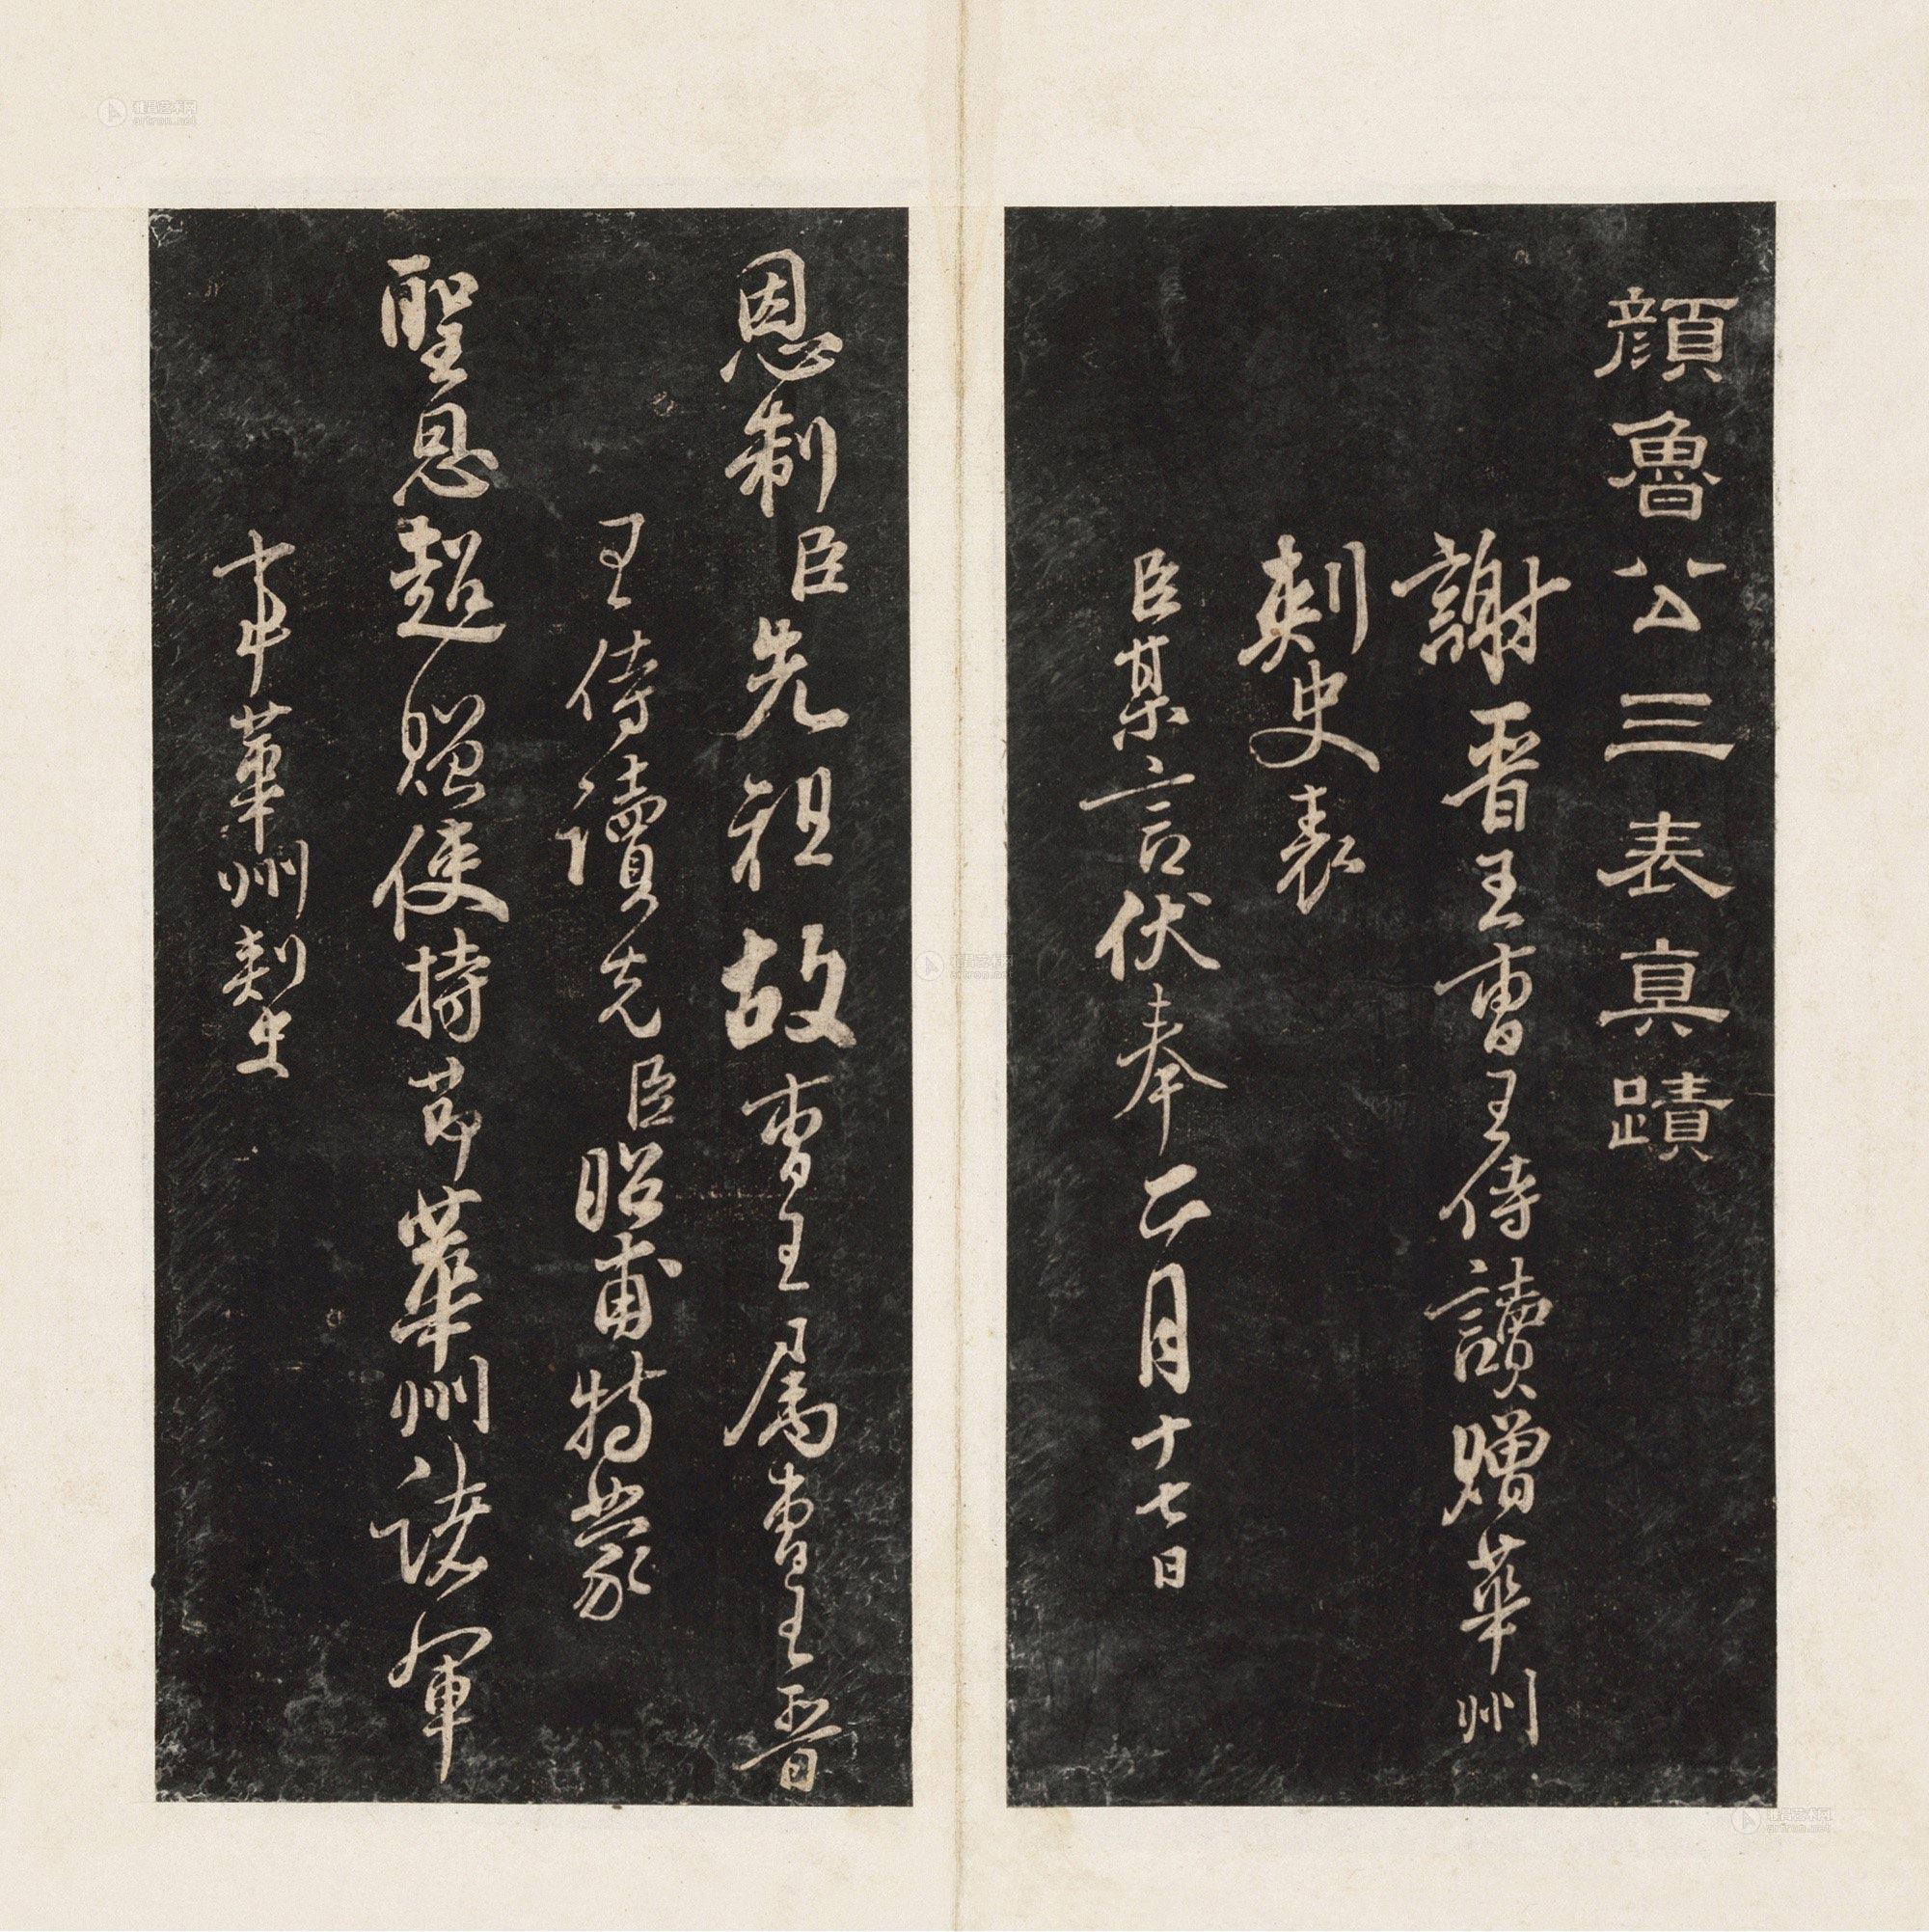 顔魯公三表真蹟
謝晉王曹王侍讀贈華州
刺史表
臣某言伏奉正月十七日
恩制臣先祖故曹王属曹王晉
王侍讀先臣昭甫特蒙
聖恩超贈使持節華州諸軍
事華州刺史
雅昌艺术网
artron.net